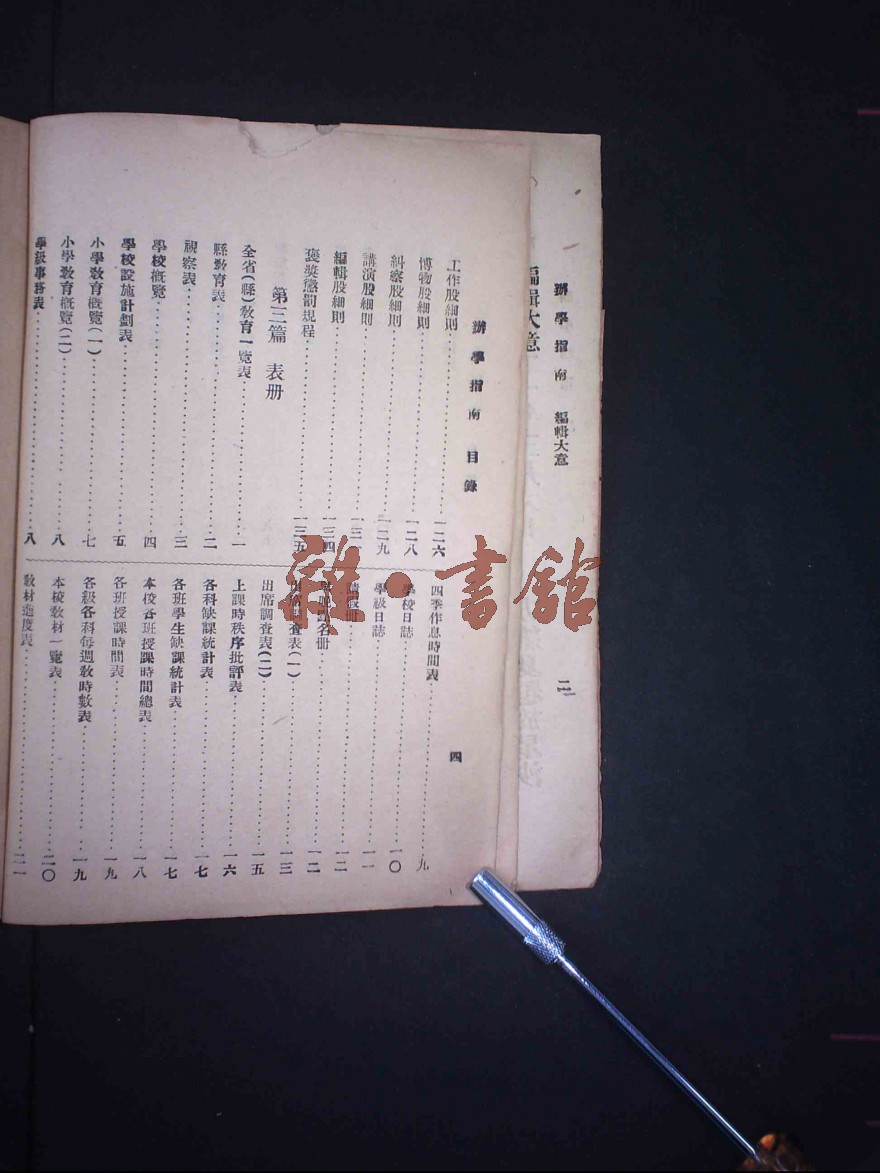 辦學指南 編輯大意
二
編輯大意
辦學指南 目錄
四
工作股細則 一二六
博物股細則 一二八
糾察股細則 一二九
講演股細則 一三一
編輯股細則 一三四
褒奬懲罰規程 一三五
第三篇 表册
全省(縣)敎育一覽表 一
縣敎育表 二
視察表 三
學校概覽 四
學校設施計劃表 五
小學敎育概覽(一) 七
小學敎育概覽(二) 八
學級事務表 八
四季作息時間表 九
學校日誌 一〇
學級日誌 一一
册 一二
名册 一二
調查表(一) 一三
出席調查表(二) 一五
上課時秩序批評表 一六
各科缺課統計表 一七
各班學生缺課統計表 一七
本校各班授課時間總表 一八
各班授課時間表 一九
各級各科每週敎時數表 一九
本校敎材一覽表 二〇
敎材進度表 二一
雜·書館